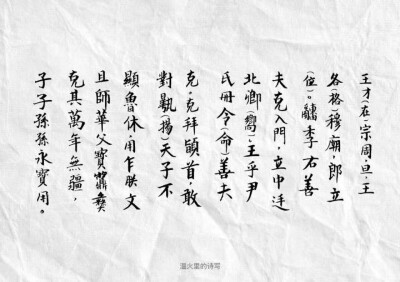 王才(在)宗周,旦,王
各(格)穆廟,即立
(位)。季右善
夫克入門,立中廷
北鄉(嚮),王乎尹
氏冊令(命)善夫
克。克拜首,敢
對(揚)天子不
顯魯休,用乍朕文
且師華父寶彝
克其萬年無疆,
子子孫孫永寶用。
温火里的诗写